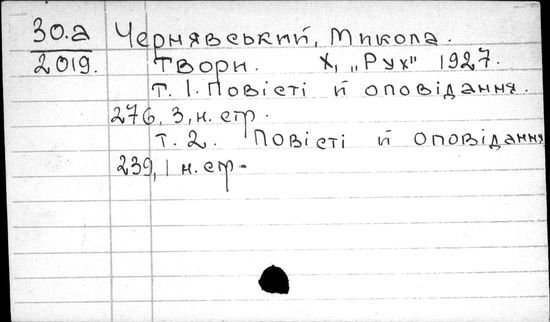 30.а Чернявський, Микола.
2019. Твори. Х, „Рух" 1927.
т. 1. Повісті й оповідання.
276, 3, н. стр.
т. 2. Повісті й оповідання
239, 1 н. стр.